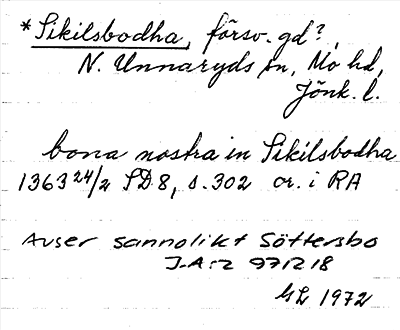 *Sikilsbodha, försv. gd?,
N. Unnaryds sn, Mo hd,
Jönk. l.
bona nostra in Sikilsbodha
1363 24/2 SD 8, s. 302 or. i RA
Avser sannolikt Söttersbo
1972